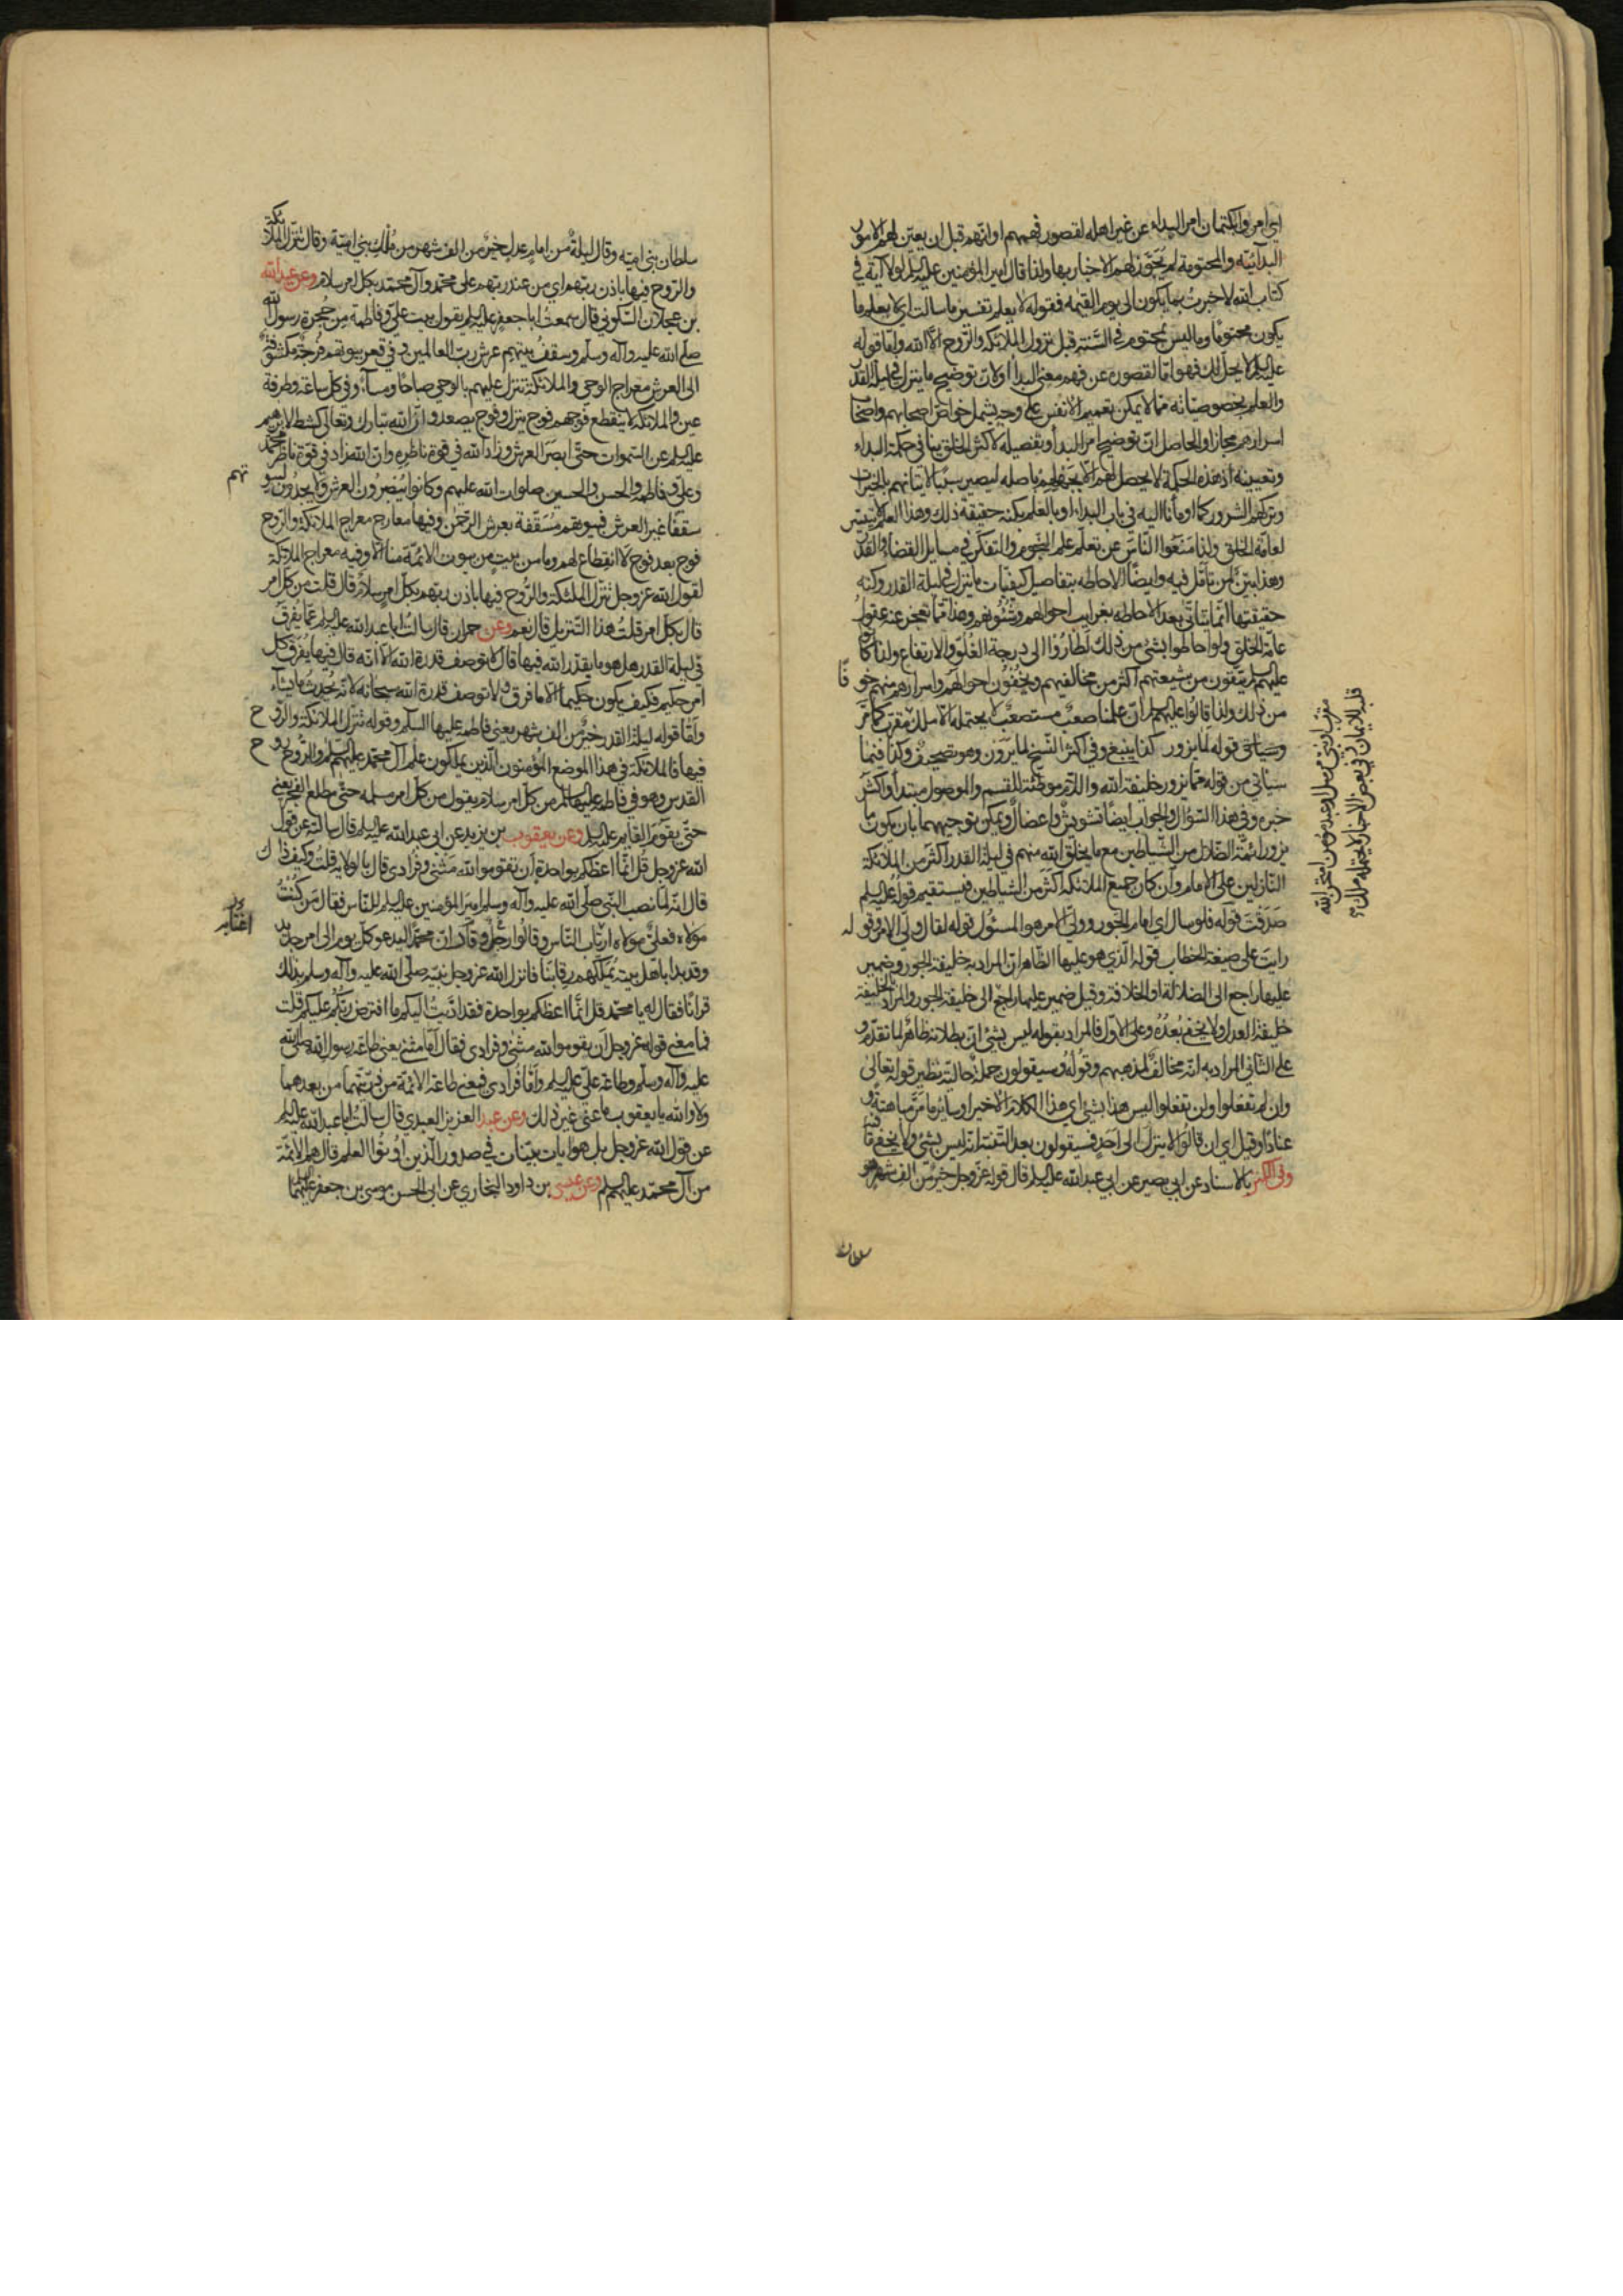 اي امروا بكتمان امر البداء عن غير اهله لقصور فهمهم او انهم قبل ان يعين لهم الامور
البدائية والمحتومة لم يجوز لهم الاخبار بها ولذا قال امير المؤمنين عليه السلم لولا آية في
كتاب الله لاخبرت بما يكون الى يوم القيمه فقوله لا يعلم تفسير ما سالت اي لا يعلم ما
يكون محتوما وما ليس بمحتوم في السنة قبل نزول الملائكة والروح الا الله واما قوله
عليه السلم لا يحل لك فهو اما لقصوره عن فهم معنى البدا او لان توضيح ما ينزل في ليلة القدر
والعلم بخصوصياته مما لا يمكن تعميم الانفس على وجه يشمل خواص اصحابهم واصحاب
اسرارهم مجازا والحاصل ان توضيح امر البدا وتفصيله لاكثر الخلق ينافي حكمة البداء
وتعيينه اذ هذه الحكمة لا يحصل لهم الا بجهلهم باصله ليصير سببا لاتيانهم بالخيرات
وتركهم الشرور كما اومأنا اليه في باب البداء او بالعلم بكنه حقيقة ذلك وهذا العلم لا يتيسر
لعامة الخلق ولذا منعوا الناس عن تعلم علم النجوم والتفكر في مسايل القضاء والقدر
وهذا بين لمن تامل فيه وايضا الاحاطه بتفاصيل كيفيات ما ينزل في ليلة القدر وكنه
حقيقتها انما يتاتى بعد الاحاطه بغرايب احوالهم وشئونهم وهذا مما تعجز عنه عقول
عامة الخلق ولو احاطوا بشئ من ذلك لطاروا الى درجة الغلو والارتفاع ولذا كانوا
عليهم السلم يتقون من شيعتهم اكثر من مخالفيهم ويخفون احوالهم واسرارهم منهم خوفا
من ذلك ولذا قالوا عليهم السلم ان علمنا صعب مستصعب لا يحتمله الا ملك مقرب كما مر
وسياتي قوله لما يزور كذا ينبغي وفي اكثر النسخ لما يرون وهو تصحيف وكذا فيما
سياتي من قوله مما يزور خليفة الله واللام موطئة للقسم والموصول مبتدا واكثر
خبره وفي هذا السؤال والجواب ايضا تشويش واعضال ويمكن توجيههما بان يكون ما
يزور ائمة الضلال من الشياطين مع ما يخلق الله منهم في ليلة القدر اكثر من الملائكة
النازلين على الامام وان كان جميع الملائكة اكثر من الشياطين فيستقيم قوله عليه السلم
صدقت قوله فلو سال اي امام الجور وولي الامر هو المسئول قوله لقال ولي الامر قوله
رايت على صيغة الخطاب قوله الذي هو عليها الظاهر ان المراد به خليفة الجور وضمير
عليها راجع الى الضلالة او الخلافة وقيل ضمير عليها راجع الى خليفة الجور والمراد بالخليفة
خليفة العدل ولا يخفى بعده وعلى الاول فالمراد بقوله ليس بشئ ان بطلانه ظاهر لما تقدم و
على الثاني المراد به انه مخالف لمذهبهم وقوله وسيقولون جملة حالية نظير قوله تعالى
وان لم تفعلوا ولن تفعلوا ليس هذا بشئ اي هذا الكلام الاخير او ساير ما مر مباهتة و
عنادا وقيل اي ان قالوا لا ينزل الى احد فسيقولون بعد التنبه انه ليس بشئ ولا يخفى ما فيه
وفي الكنز بالاسناد عن ابي بصير عن ابي عبد الله عليه السلم قال قوله عز وجل خير من الف شهر هو
سلطان
مقرب او نبي مرسل او عبد مؤمن امتحن الله
قلبه للايمان وفي بعض الاخبار لا يحتمله ملك
سلطان بني اميه وقال ليلة من امام عدل خير من الف شهر من ملك بني امية وقال تنزل الملائكة
والروح فيها باذن ربهم اي من عند ربهم على محمد وآل محمد بكل امر سلام وعن عبد الله
بن عجلان السكوني قال سمعت ابا جعفر عليه السلم يقول بيت علي وفاطمة من حجرة رسول الله
صلى الله عليه وآله وسلم وسقف بيتهم عرش رب العالمين وفي قعر بيوتهم فرجة مكشوفة
الى العرش معراج الوحي والملائكة تنزل عليهم بالوحي صباحا ومساء وفي كل ساعة وطرفة
عين والملائكة لا ينقطع فوجهم فوج ينزل وفوج يصعد وان الله تبارك وتعالى كشط لابرهيم
عليه السلم عن السموات حتى ابصر العرش وزاد الله في قوة ناظره وان الله زاد في قوة ناظر محمد
وعلي وفاطمة والحسن والحسين صلوات الله عليهم وكانوا يبصرون العرش ولا يجدون لبيوتهم
سقفا غير العرش فبيوتهم مسقفة بعرش الرحمن وفيها معارج معراج الملائكة والروح
فوج بعد فوج لا انقطاع لهم وما من بيت من بيوت الائمة منا الا وفيه معراج الملائكة
لقول الله عز وجل تنزل الملئكة والروح فيها باذن ربهم بكل امر سلام قال قلت من كل امر
قال بكل امر قلت هذا التنزيل قال نعم وعن حمران قال سالت ابا عبد الله عليه السلم عما يفرق
في ليلة القدر هل هو ما يقدر الله فيها قال لا توصف قدرة الله الا انه قال فيها يفرق كل
امر حكيم فكيف يكون حكيما الا ما فرق ولا توصف قدرة الله سبحانه لانه يحدث ما يشاء
واما قوله ليلة القدر خير من الف شهر يعني فاطمه عليها السلم وقوله تنزل الملائكة والروح
فيها فالملائكة في هذا الموضع المؤمنون الذين يملكون علم آل محمد عليهم السلم والروح روح
القدس وهو في فاطمه عليها السلم من كل امر سلام يقول من كل امر مسلمه حتى مطلع الفجر يعني
حتى يقوم القايم عليه السلم وعن يعقوب بن يزيد عن ابي عبد الله عليه السلم قال سالته عن قول
الله عز وجل قل انما اعظكم بواحدة ان تقوموا لله مثنى وفرادى قال بالولاية قلت وكيف ذاك
قال انه لما نصب النبي صلى الله عليه وآله وسلم امير المؤمنين عليه السلم للناس فقال من كنت
مولاه فعلي مولاه ارتاب الناس وقالوا ان محمدا ليدعو كل يوم الى امر جديد
وقد بدا باهل بيته يملكهم رقابنا فانزل الله عز وجل نبيه صلى الله عليه وآله وسلم بذلك
قرانا فقال له يا محمد قل انما اعظكم بواحدة فقد اديت اليكم ما افترض ربكم عليكم قلت
فما معنى قوله عز وجل ان يقوموا لله مثنى وفرادى فقال اما مثنى يعني طاعة رسول الله صلى الله
عليه وآله وسلم وطاعة علي عليه السلم واما فرادى فيعني طاعة الائمة من ذريتهما من بعدهما
ولا والله يا يعقوب ما عنى غير ذلك وعن عبد العزيز العبدي قال سالت ابا عبد الله عليه السلم
عن قول الله عز وجل بل هو ايات بينات في صدور الذين اوتوا العلم قال هم الائمة
من آل محمد عليهم السلم وعن عيسى بن داود البخاري عن ابي الحسن موسى بن جعفر عليهما السلم